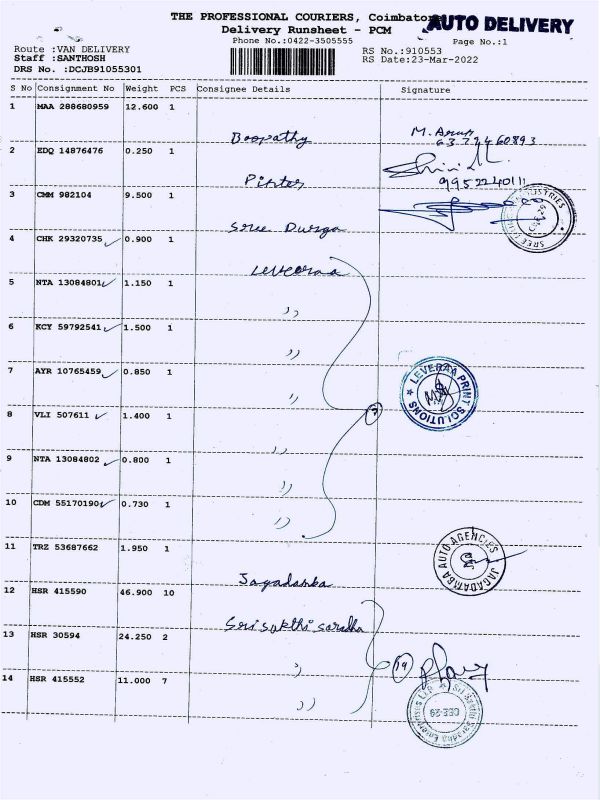 THE PROFESSIONAL COURIERS, Coimbatore
AUTO DELIVERY
Delivery Runsheet - PCM
Phone No.:0422-3505555
Page No.:1
Route :VAN DELIVERY
RS No.:910553
Staff :SANTHOSH
RS Date:23-Mar-2022
DRS No. :DCJB91055301
S No Consignment No Weight PCS Consignee Details Signature
1 MAA 288680959 12.600 1
Boopathy M. Arun
6372460893
2 EDQ 14876476 0.250 1
Pinter
9952240111
3 CMM 982104 9.500 1
Sree Durga
SREE INDUSTRIES
4 CHK 29320735 0.900 1
Leveraa
5 NTA 13084801 1.150 1
,,
6 KCY 59792541 1.500 1
,,
7 AYR 10765459 0.850 1
,,
LEVERAA PRINT SOLUTIONS
8 VLI 507611 1.400 1
7
,,
9 NTA 13084802 0.800 1
,,
10 CDM 55170190 0.730 1
,,
11 TRZ 53687662 1.950 1
Jagadamba
JAGADAMBA AUTO AGENCIES
12 HSR 415590 46.900 10
Sri Sakthi Saradha
13 HSR 30594 24.250 2
,,
19
14 HSR 415552 11.000 7
,,
Sri Sakthi Saradha Enterprises LLP
CBE-29